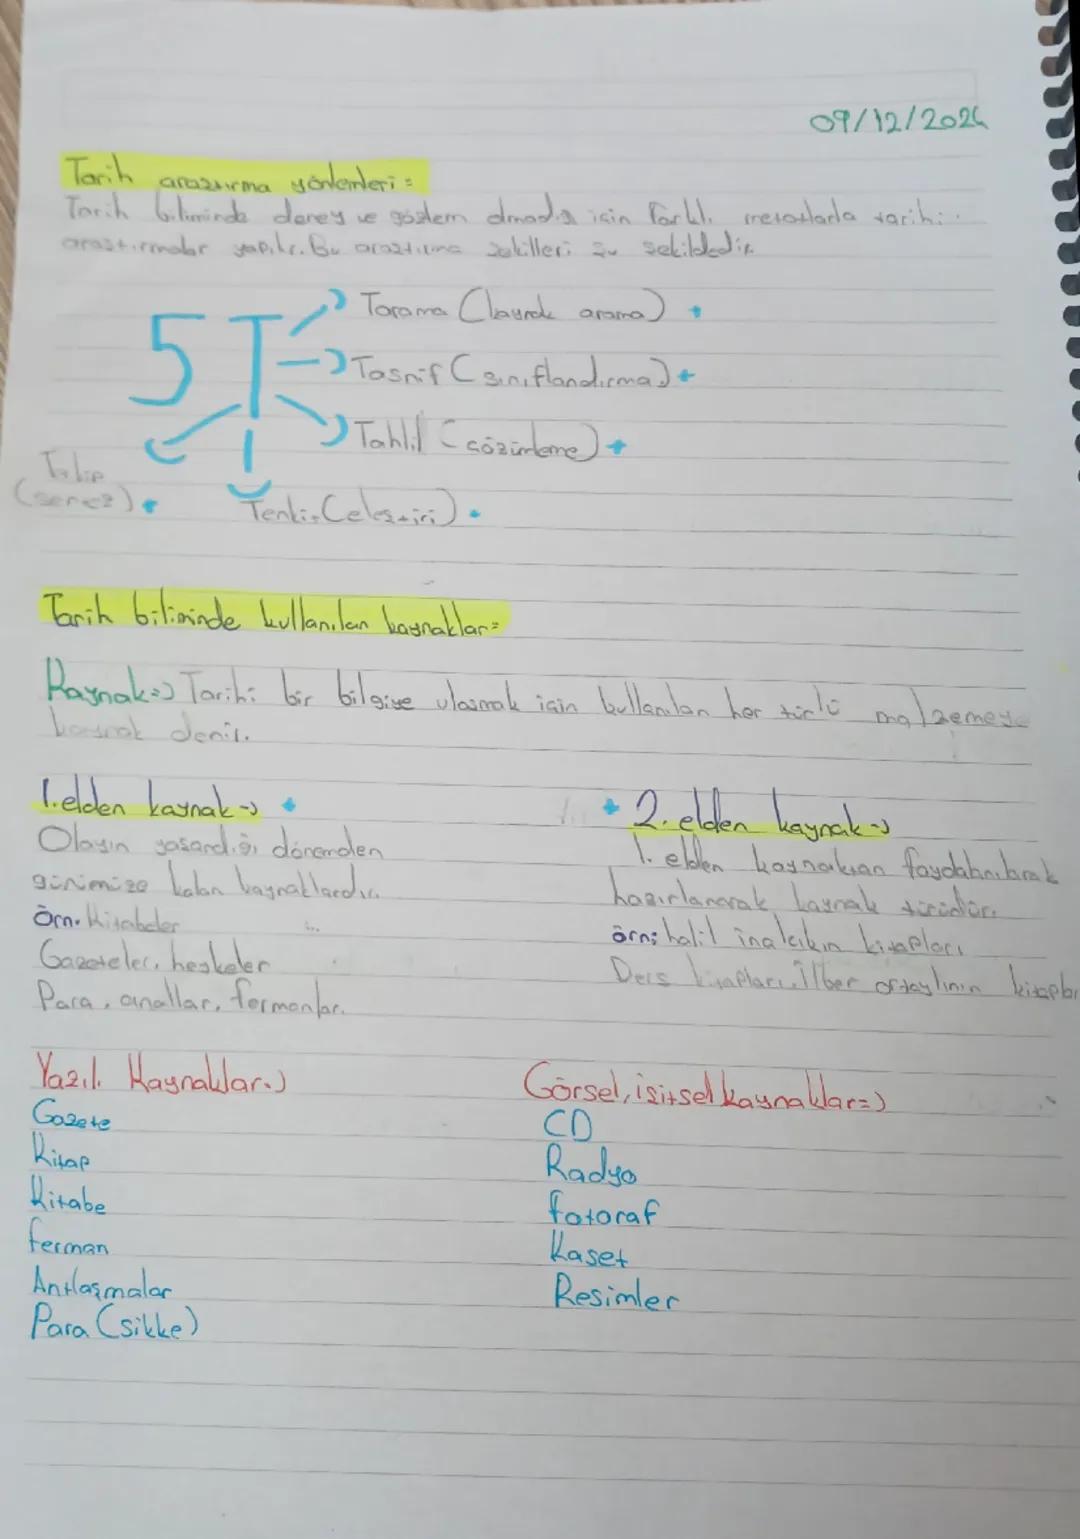 09/12/2024
Tarih araştırma yöntemleri:
Tarih biliminde deney ve gözlem olmadığı için farklı metotlarla tarihi
araştırmalar yapılır. Bu araştırma şekilleri şu şekildedir.
5T
Tarama (kaynak arama)
Tasnif (sınıflandırma)
Tahlil (çözümleme)
Terkip
(sentez)
Tenkit (eleştiri)
Tarih biliminde kullanılan kaynaklar=
Kaynak=) Tarihi bir bilgiye ulaşmak için kullanılan her türlü malzemeye
kaynak denir.
1. elden kaynak→
Olayın yaşandığı dönemden
günümüze kalan kaynaklardır.
Örn. Kitabeler
Gazeteler, heykeler
Para, anallar, fermanlar.
2. elden kaynak→
1. elden kaynaktan faydalanılarak
hazırlanarak kaynak türüdür.
örn: halil inalcıkın kitapları
Ders kitapları, İlber ortaylının kitapları
Yazılı Kaynaklar=)
Gazete
Kitap
Kitabe
ferman
Antlaşmalar
Para (sikke)
Görsel, işitsel kaynaklar=)
CD
Radyo
fotoraf
Kaset
Resimler